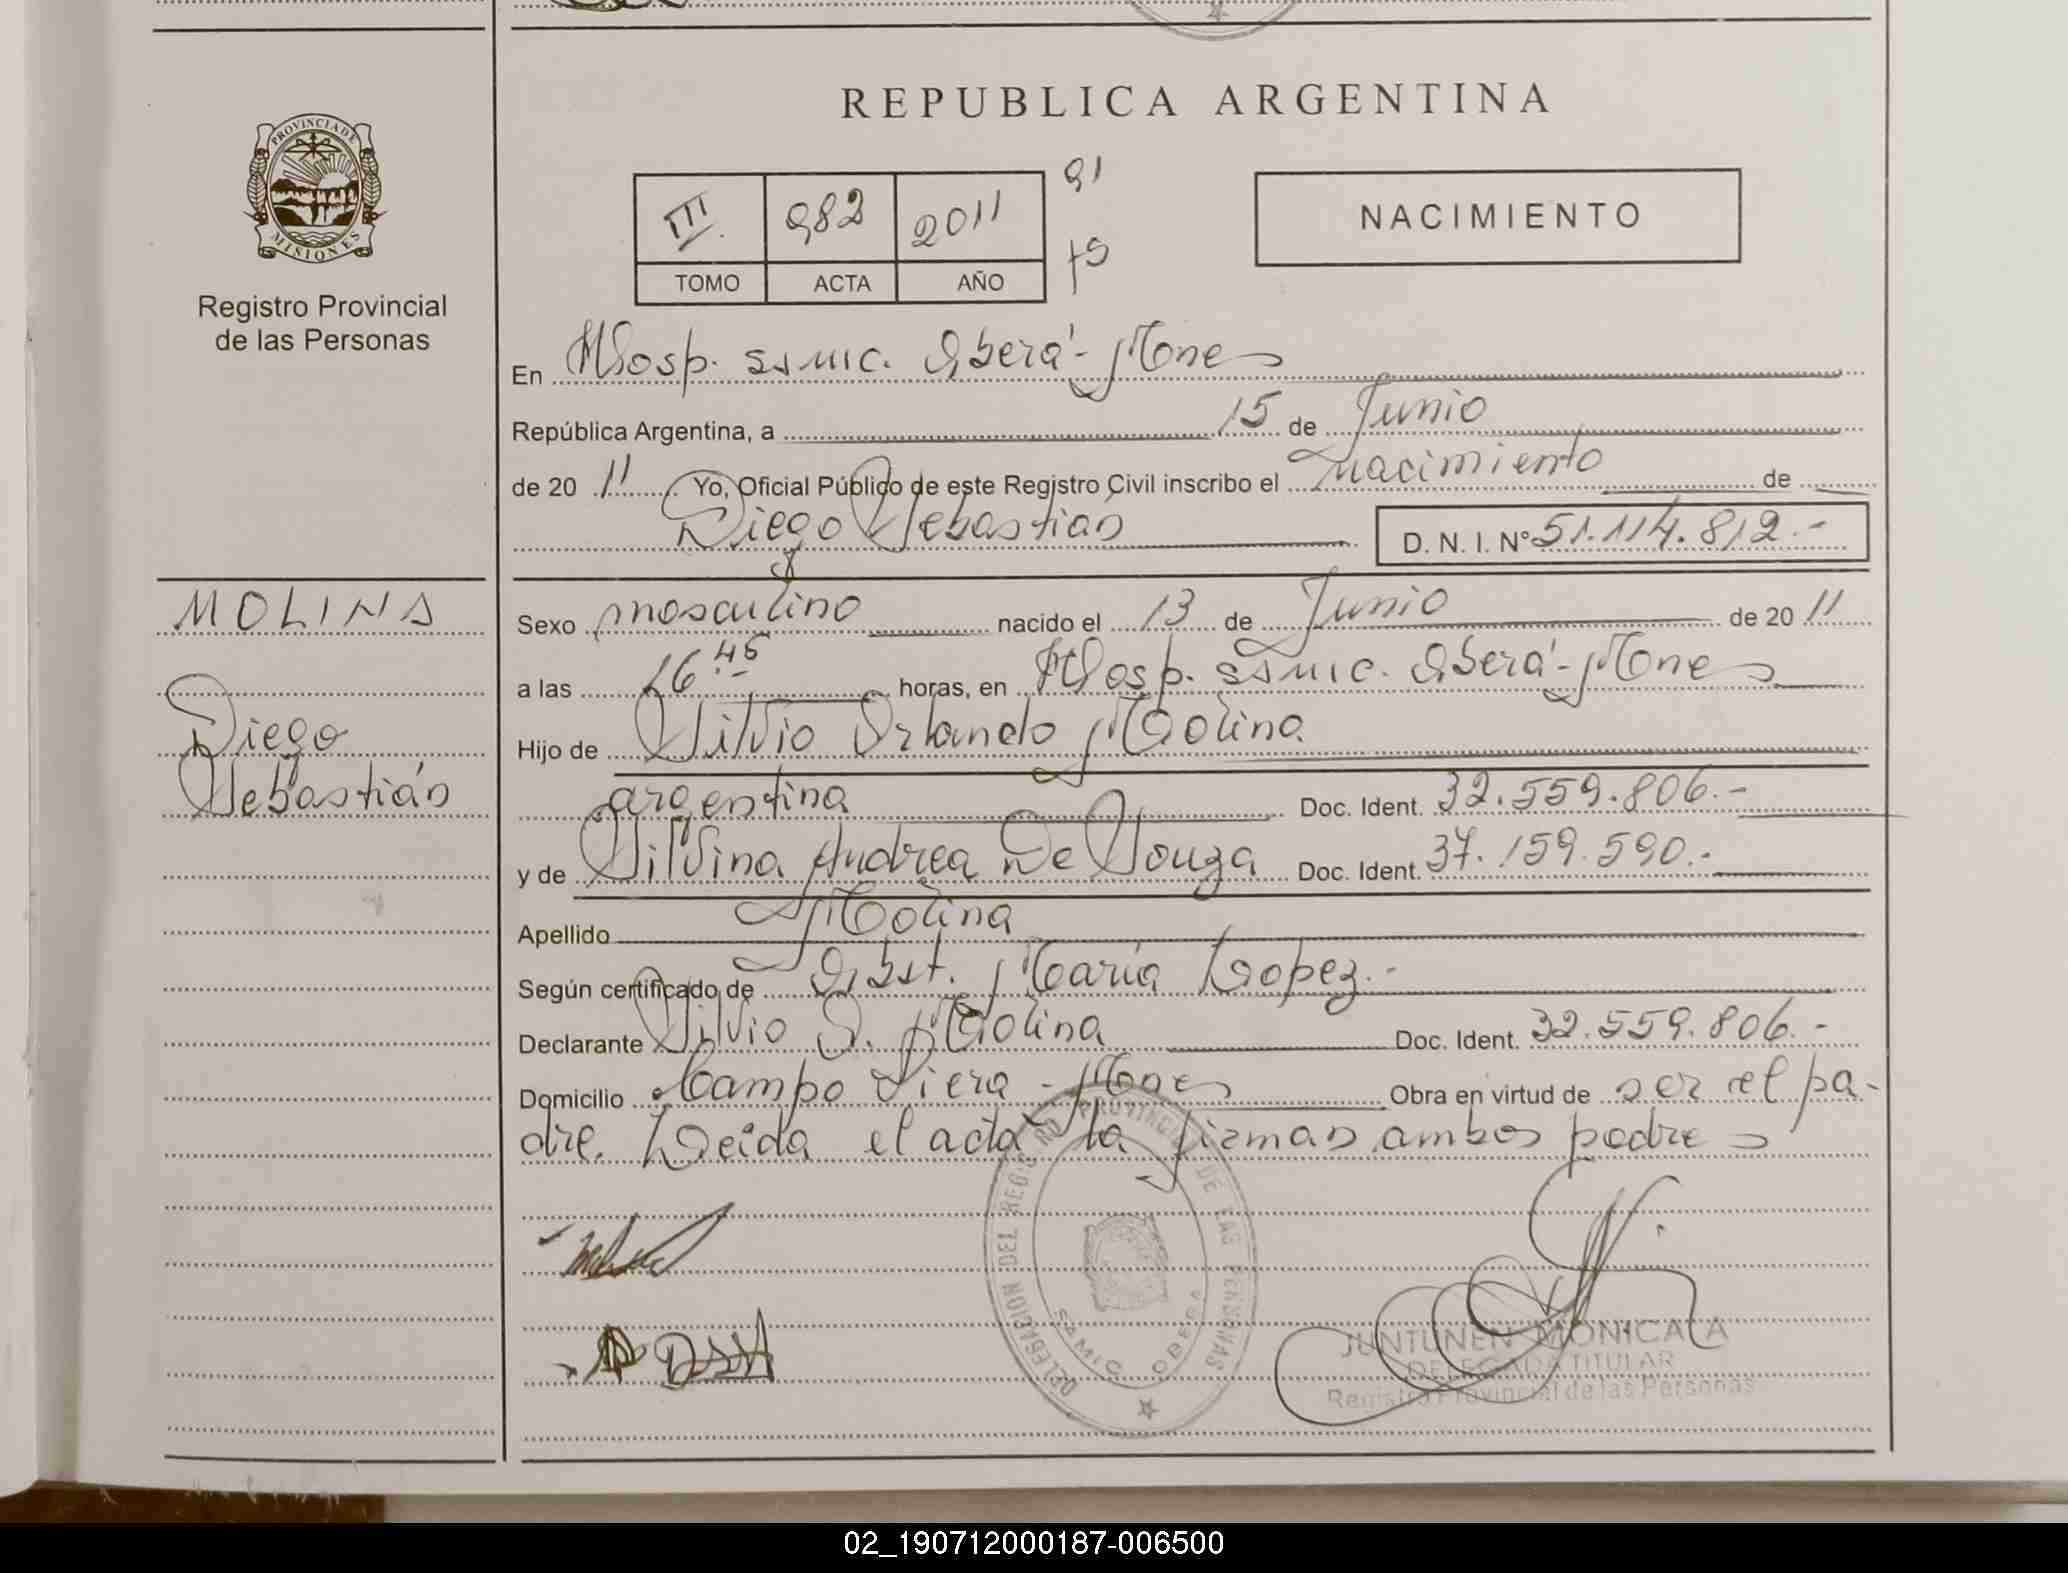 PROVINCIA DE
MISIONES
Registro Provincial
de las Personas
MOLINA
Diego
Sebastián
REPUBLICA ARGENTINA
III 982 2011 91
TOMO ACTA AÑO
NACIMIENTO
En Hosp. SAMIC. Oberá - Mnes
República Argentina, a 15 de Junio
de 20 11 Yo, Oficial Público de este Registro Civil inscribo el Nacimiento de
Diego Sebastian D. N. I. Nº 51.114.812.-
Sexo masculino nacido el 13 de Junio de 20 11
a las 16 45 horas, en Hosp. SAMIC. Oberá - Mnes
Hijo de Silvio Orlando Molina
argentina Doc. Ident. 32.559.806.-
y de Silvina Andrea De Souza Doc. Ident. 37.159.590.-
Apellido Molina
Según certificado de Obst. María Lopez.-
Declarante Silvio O. Molina Doc. Ident. 32.559.806.-
Domicilio Campo Viera - Mnes Obra en virtud de ser el pa-
dre. Leida el acta la firman ambos padres
DELEGACION DEL REGISTRO PROVINCIAL DE LAS PERSONAS
SAMIC OBERA
JUNTUNEN MONICA A
DELEGADA TITULAR
Registro Provincial de las Personas
02_190712000187-006500